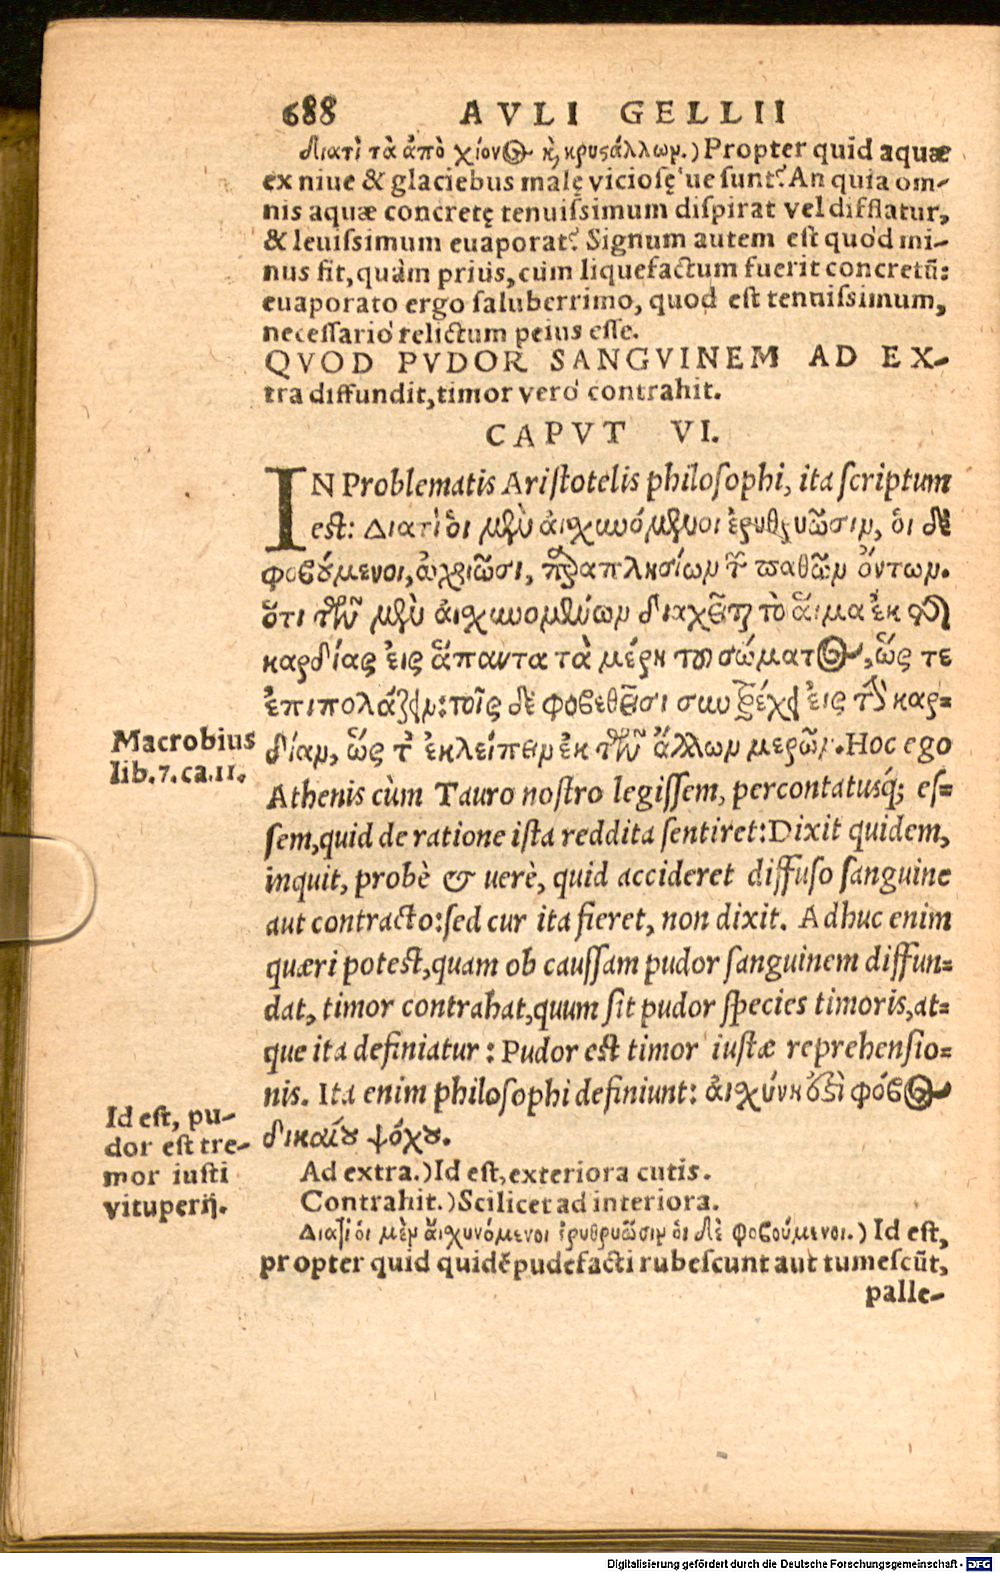 688 AVLI GELLII
Διατὶ τὰ ἀπὸ χίονος κ̀ κρυστάλλων.) Propter quid aquæ
ex niue & glaciebus malę viciosę ue sunt? An quia om-
nis aquæ concretę tenuissimum dispirat vel difflatur,
& leuissimum euaporat? Signum autem est quòd mi-
nus fit, quàm priùs, cùm liquefactum fuerit concretũ:
euaporato ergo saluberrimo, quod est tenuissimum,
necessariò relictum peius esse.
QVOD PVDOR SANGVINEM AD EX-
tra diffundit, timor verò contrahit.
CAPVT VI.
IN Problematis Aristotelis philosophi, ita scriptum
est: Διατὶ ὁι μὲν ἀισχυνόμενοι ἐρυθρυῶσιν, ὁι δὲ
φοβούμενοι, ὠχριῶσι, παραπλησίων τῶν παθῶν ὄντων.
ὅτι τῶν μὲν ἀισχυνομένων διαχεῖται τὸ ἅιμα ἐκ τῆς
καρδίας ἐις ἅπαντα τὰ μέρη τοῦ σώματος, ὥς τε
ἐπιπολάζειν: τοῖς δὲ φοβεθεῖσι συντρέχει ἐις τὴν καρ-
δίαν, ὥς τ' ἐκλείπειν ἐκ τῶν ἄλλων μερῶν. Hoc ego
Macrobius
lib.7.ca.11.
Athenis cùm Tauro nostro legissem, percontatusq́; es-
sem, quid de ratione ista reddita sentiret: Dixit quidem,
inquit, probè & uerè, quid accideret diffuso sanguine
aut contracto: sed cur ita fieret, non dixit. Adhuc enim
quæri potest, quam ob caussam pudor sanguinem diffun-
dat, timor contrahat, quum sit pudor species timoris, at-
que ita definiatur: Pudor est timor iustæ reprehensio-
nis. Ita enim philosophi definiunt: ἀισχύνη ἐστὶ φόβος
δικαίου ψόχου.
Id est, pu-
dor est tre-
mor iusti
vituperij.
Ad extra.) Id est, exteriora cutis.
Contrahit.) Scilicet ad interiora.
Διατὶ ὁι μὲν ἀισχυνόμενοι ἐρυθρυῶσιν ὁι δὲ φοβούμενοι.) Id est,
propter quid quidẽ pudefacti rubescunt aut tumescũt,
palle-
Digitalisierung gefördert durch die Deutsche Forschungsgemeinschaft - DFG